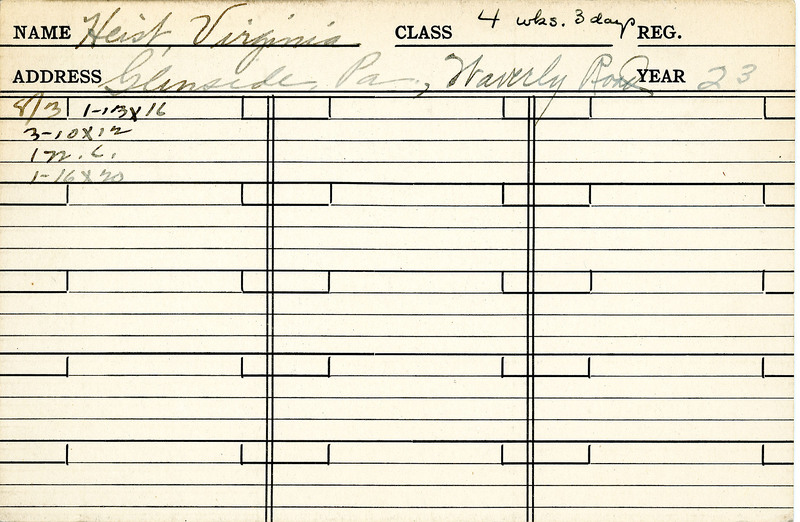 NAME Heist, Virginia CLASS 4 wks. 3 days REG.
ADDRESS Glenside, Pa., Waverly Road YEAR 23
8/3 1-13X16
3-10X12
1-n.c.
1-16X20